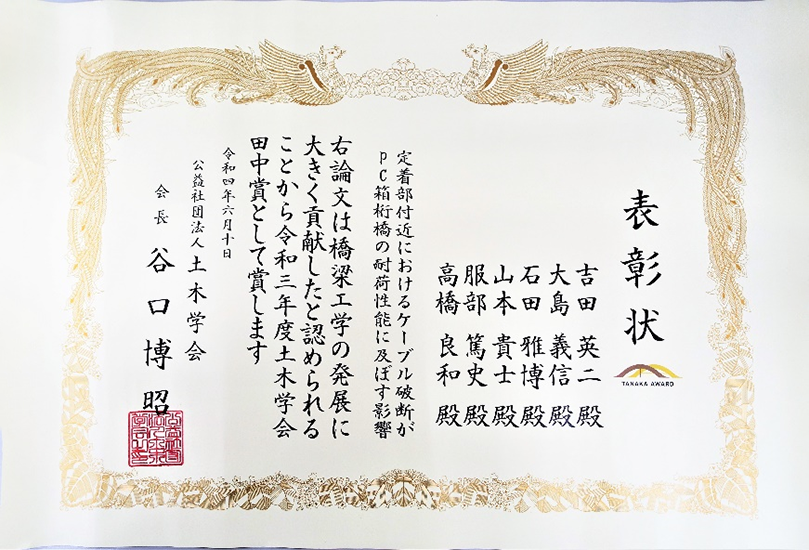 表彰状
TANAKA AWARD
吉田 英二 殿
大島 義信 殿
石田 雅博 殿
山本 貴士 殿
服部 篤史 殿
高橋 良和 殿
定着部付近におけるケーブル破断が
PC箱桁橋の耐荷性能に及ぼす影響
右論文は橋梁工学の発展に
大きく貢献したと認められる
ことから令和三年度土木学会
田中賞として賞します
令和四年六月十日
公益社団法人 土木学会
会長 谷口博昭